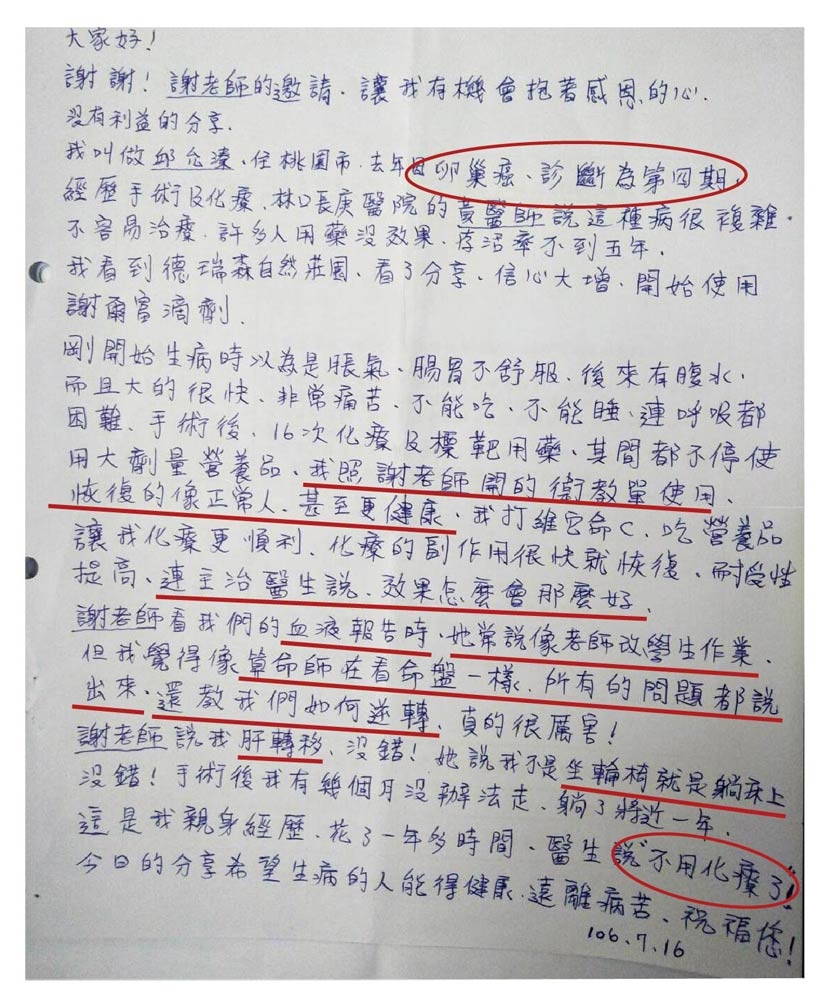 大家好!
謝謝!謝老師的邀請、讓我有機會抱著感恩的心、
沒有利益的分享.
我叫做邱 溱、住桃園市、去年因卵巢癌、診斷為第四期、
經歷手術及化療、林口長庚醫院的黃醫師說這種病很複雜、
不容易治療、許多人用藥沒效果、存活率不到五年、
我看到德瑞森自然莊園、看了分享、信心大增、開始使用
謝爾富滴劑.
剛開始生病時以為是脹氣、腸胃不舒服、後來有腹水、
而且大的很快、非常痛苦、不能吃、不能睡、連呼吸都
困難、手術後、16次化療及標靶用藥、其間都不停使
用大劑量營養品、我照謝老師開的衛教單使用、
恢復的像正常人、甚至更健康、我打維它命C、吃營養品
讓我化療更順利、化療的副作用很快就恢復、耐受性
提高、連主治醫生說、效果怎麼會那麼好、
謝老師看我們的血液報告時、她常說像老師改學生作業、
但我覺得像算命師在看命盤一樣、所有的問題都說
出來、還教我們如何逆轉、真的很厲害!
謝老師說我肝轉移、沒錯!她說我不是坐輪椅就是躺床上
沒錯!手術後我有幾個月沒辦法走、躺了將近一年、
這是我親身經歷、花了一年多時間、醫生說"不用化療了"!
今日的分享希望生病的人能得健康、遠離病苦、祝福您!
106.7.16